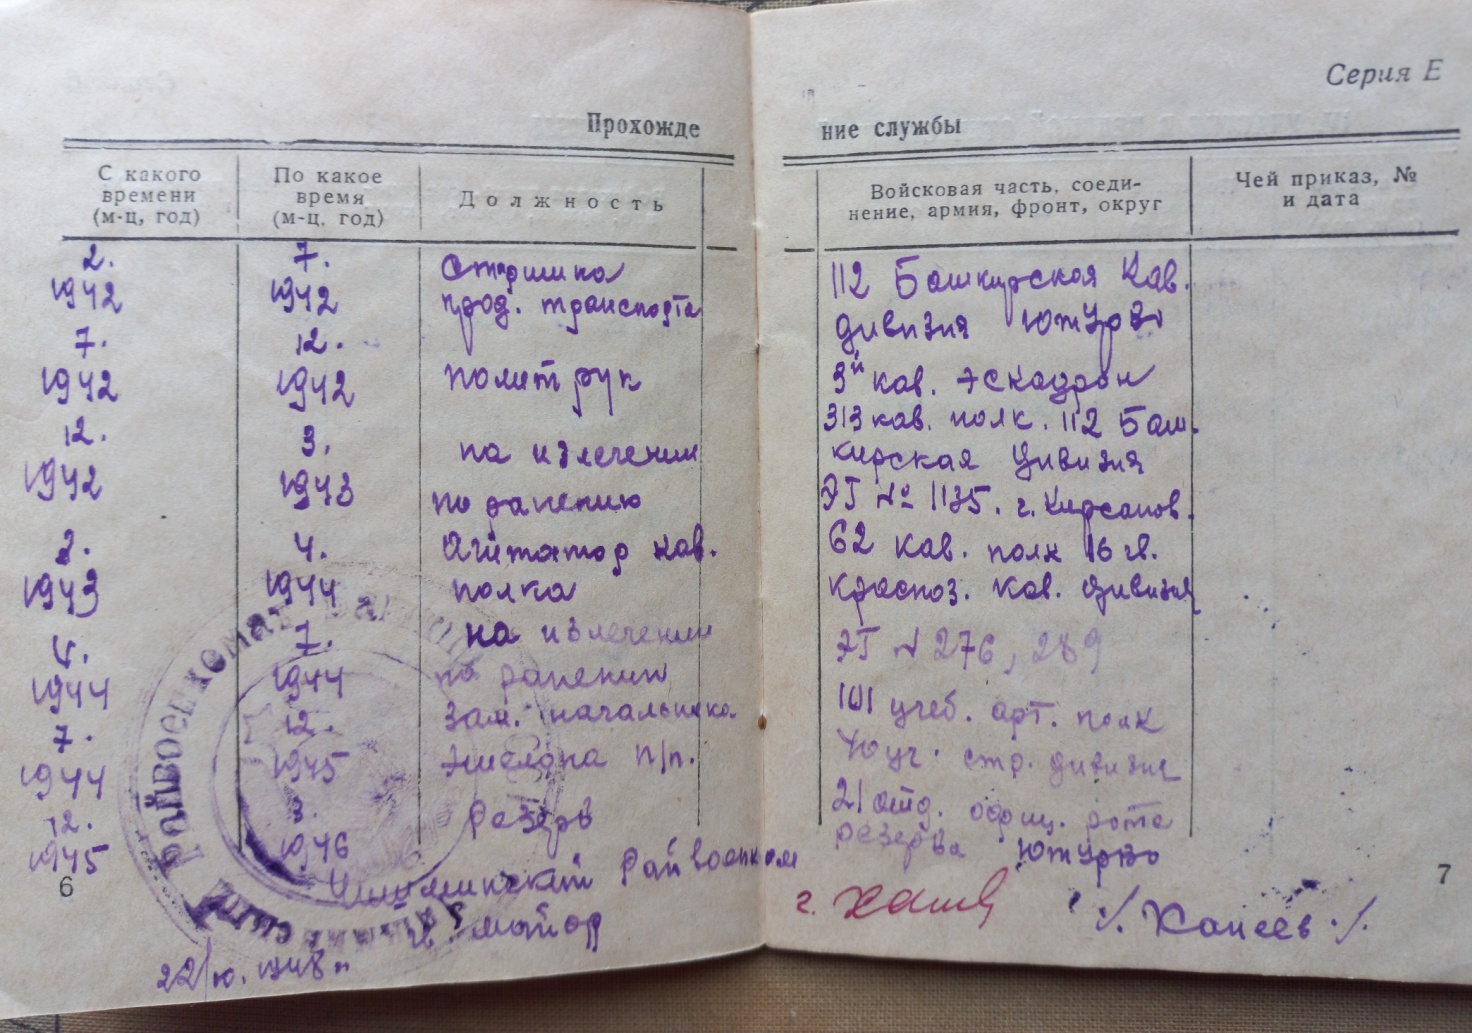 Серия Е
Прохожде
ние службы
С какого
времени
(м-ц, год)
По какое
время
(м-ц, год)
Должность
Войсковая часть, соеди-
нение, армия, фронт, округ
Чей приказ, №
и дата
2.
1942
7.
1942
Старшина
прод. транспорта
112 Башкирская Кав.
дивизия ЮжУрВо
7.
1942
12.
1942
политрук
3й кав. эскадрон
313 кав. полк. 112 Баш.
кирская дивизия
12.
1942
3.
1943
на излечении
по ранению
ЭГ № 1135. г. Кирсанов.
3.
1943
4.
1944
Агитатор кав.
полка
62 кав. полк 16 гв.
красноз. кав. дивизия
4.
1944
7.
1944
на излечении
по ранению
ЭГ № 276, 289
7.
1944
12.
1945
Зам. начальника
эшелона п/п.
101 учеб. арт. полк
уч. стр. дивизия
12.
1945
3.
1946
Резерв
21 отд. офиц. рота
резерва ЮжУрВо
6
7
Чишминский Райвоенком
майор
г.
./. Ханеев ./.
22/ю. 1948 г
Райвоенкомат